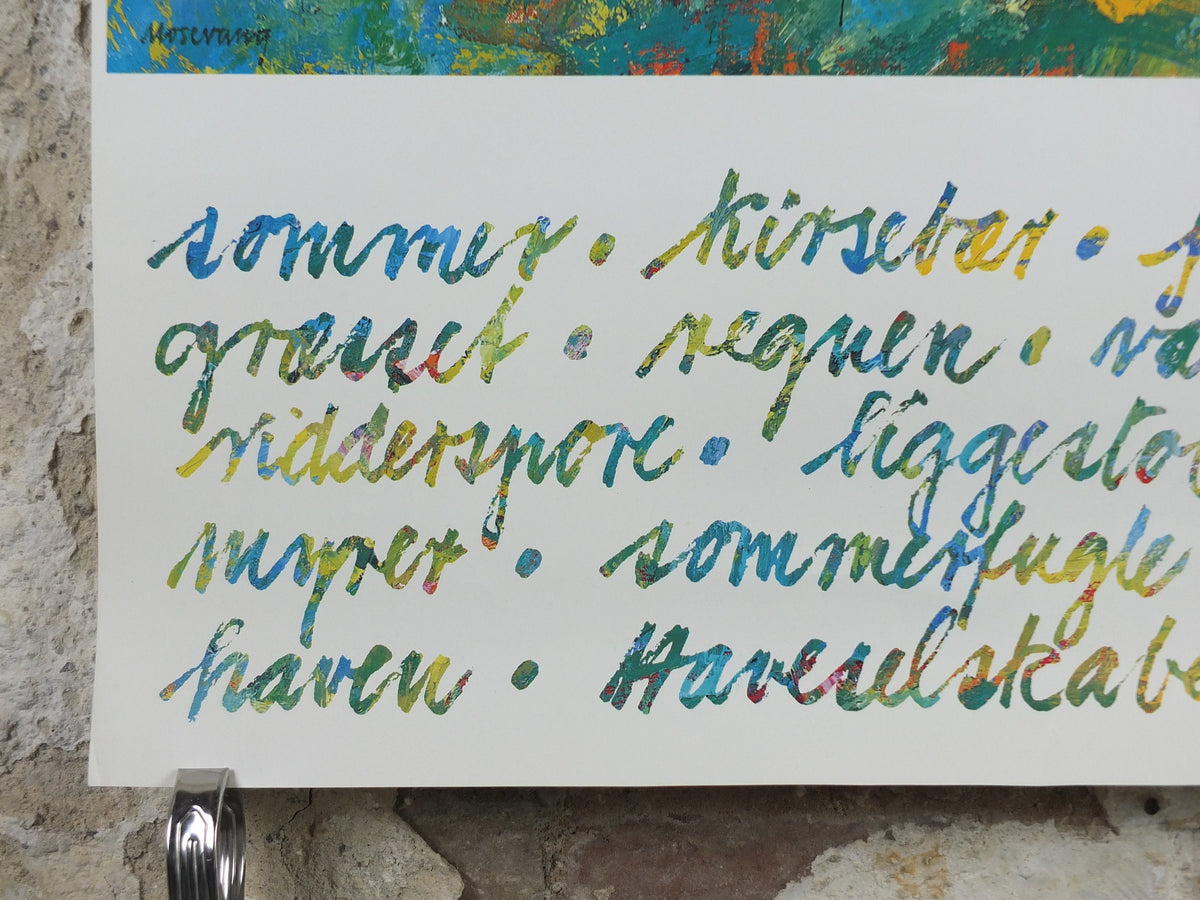 Mosevang
sommer · kirsebær ·
græsset · regnen · va
ridderspore · liggesto
myrer · sommerfugle
haven · Haveselskabe